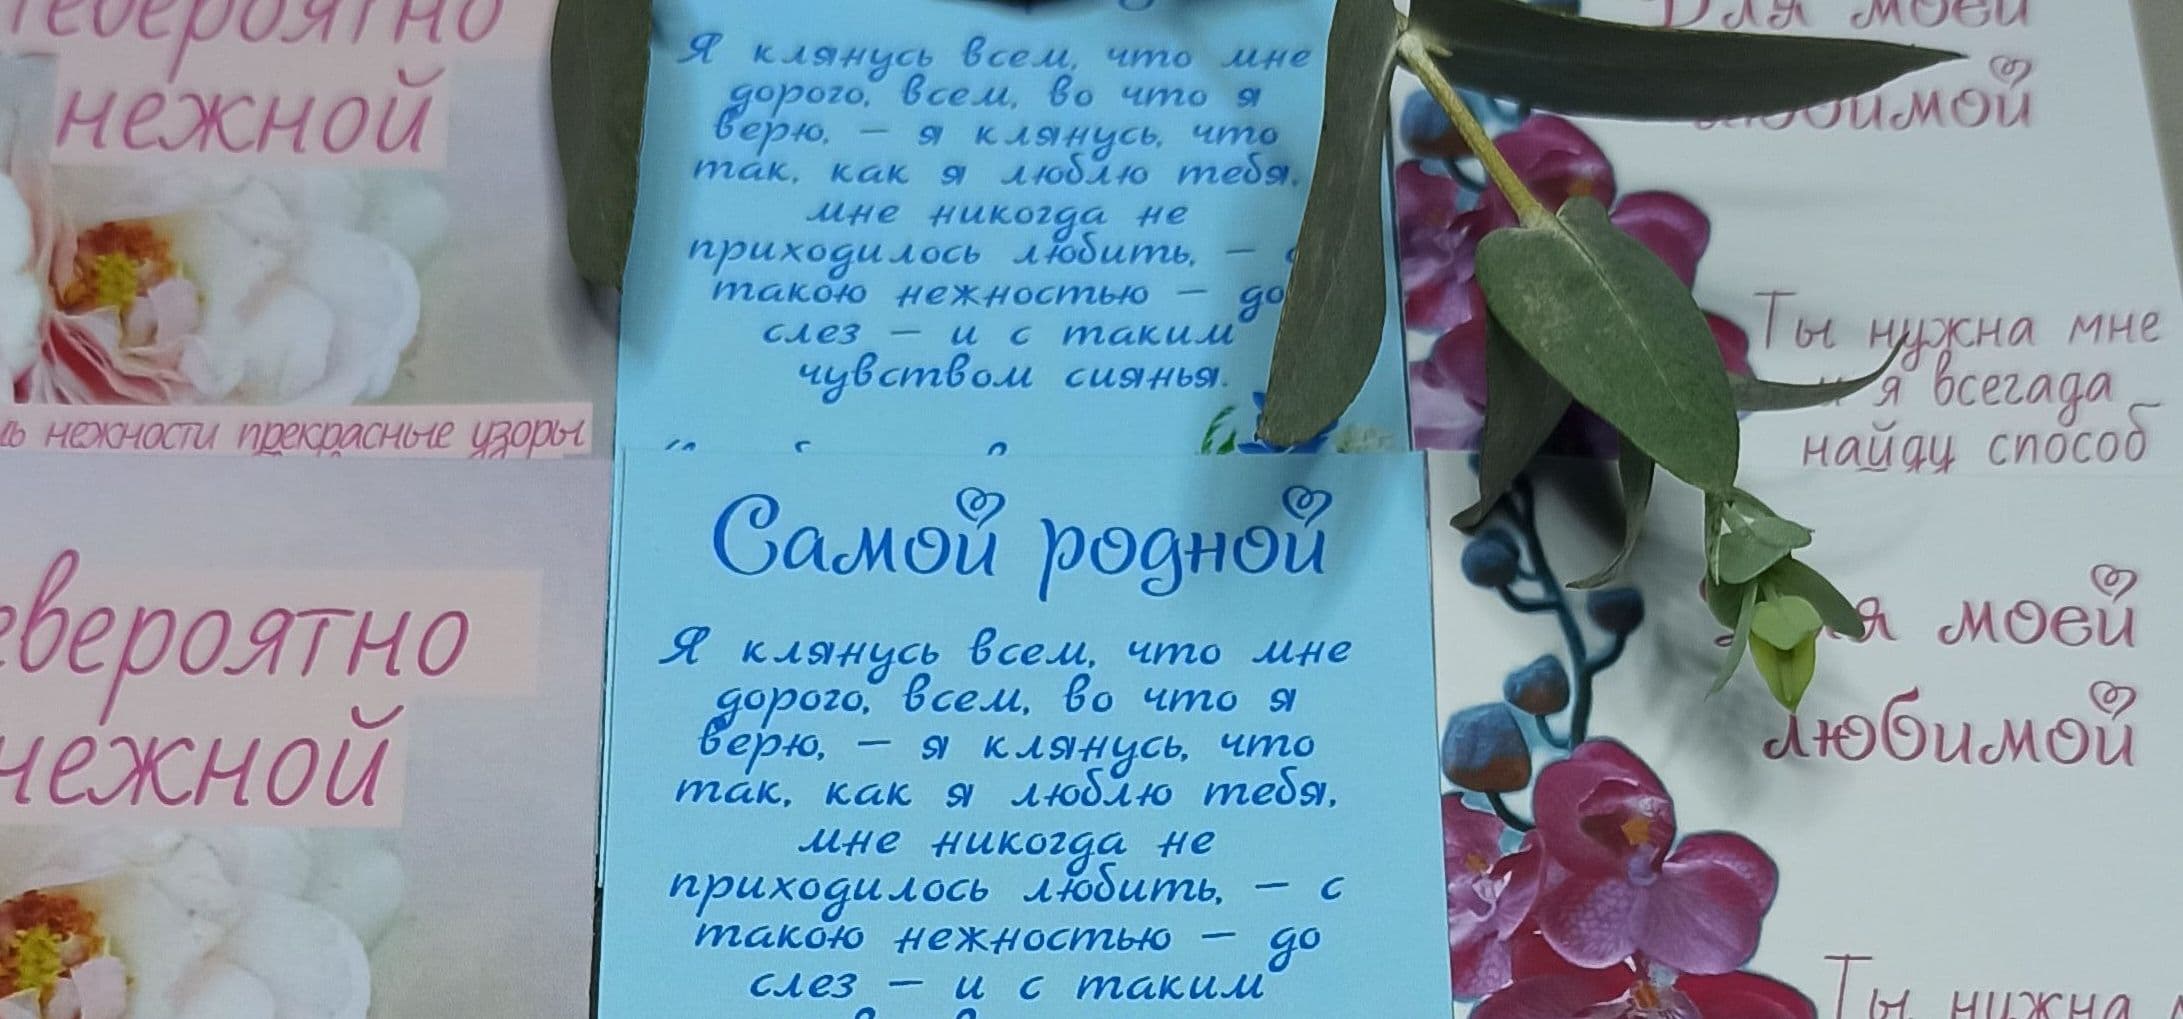 нежной
нежности прекрасные узоры
Я клянусь всем, что мне
дорого, всем, во что я
верю, — я клянусь, что
так, как я люблю тебя,
мне никогда не
приходилось любить, —
такою нежностью — до
слез — и с таким
чувством сиянья.
моей
Ты нужна мне
я всегада
найду способ
нежной
Самой родной
Я клянусь всем, что мне
дорого, всем, во что я
верю, — я клянусь, что
так, как я люблю тебя,
мне никогда не
приходилось любить, — с
такою нежностью — до
слез — и с таким
моей
любимой
Ты нужна